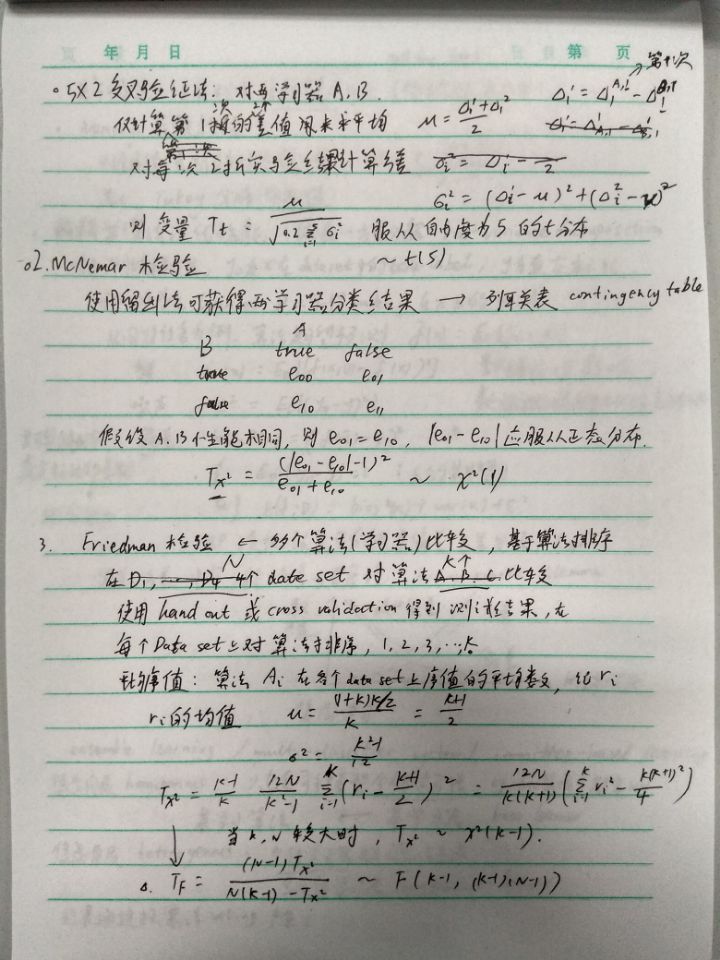 年 月 日 第 页
。5×2 交叉验证法: 对两学习器 A、B. 第i次
仅计算第1次 2折的差值用来求平均 μ = (Δ₁¹+Δ₁²)/2 Δᵢ¹ = Δᵢ^{A,1} - Δᵢ^{B,1}
对每次2折实验结果计算方差
σᵢ² = (Δᵢ¹ - μ)² + (Δᵢ² - μ)²
则变量 Tt = μ/√(0.2 Σ_{i=1}^{5} σᵢ²) 服从自由度为5的t分布
~ t(5)
2. McNemar 检验
使用留出法可获得两学习器分类结果 → 列联表 contingency table
A
B true false
true e₀₀ e₀₁
false e₁₀ e₁₁
假设A、B性能相同, 则 e₀₁ = e₁₀, |e₀₁ - e₁₀| 应服从正态分布.
Tχ² = (|e₀₁ - e₁₀| - 1)²/(e₀₁ + e₁₀) ~ χ²(1)
3. Friedman 检验 ← 多个算法(学习器)比较, 基于算法排序
在 N个 date set 对算法 K个 比较
使用 hand out 或 cross validation 得到测试结果, 在
每个 Data set 上对算法排序, 1, 2, 3, …, k
平均序值: 算法 Ai 在各个 data set 上序值的平均数, 记 ri
ri 的均值 μ = ((1+k)k/2)/k = (k+1)/2
σ² = (k²-1)/12
Tχ² = (k-1)/k · 12N/(k²-1) Σ_{i=1}^{k} (ri - (k+1)/2)² = 12N/(k(k+1)) (Σ_{i=1}^{k} ri² - k(k+1)²/4)
当 k, N 较大时, Tχ² ~ χ²(k-1).
↓
Δ. TF = (N-1)Tχ²/(N(k-1) - Tχ²) ~ F(k-1, (k-1)(N-1))